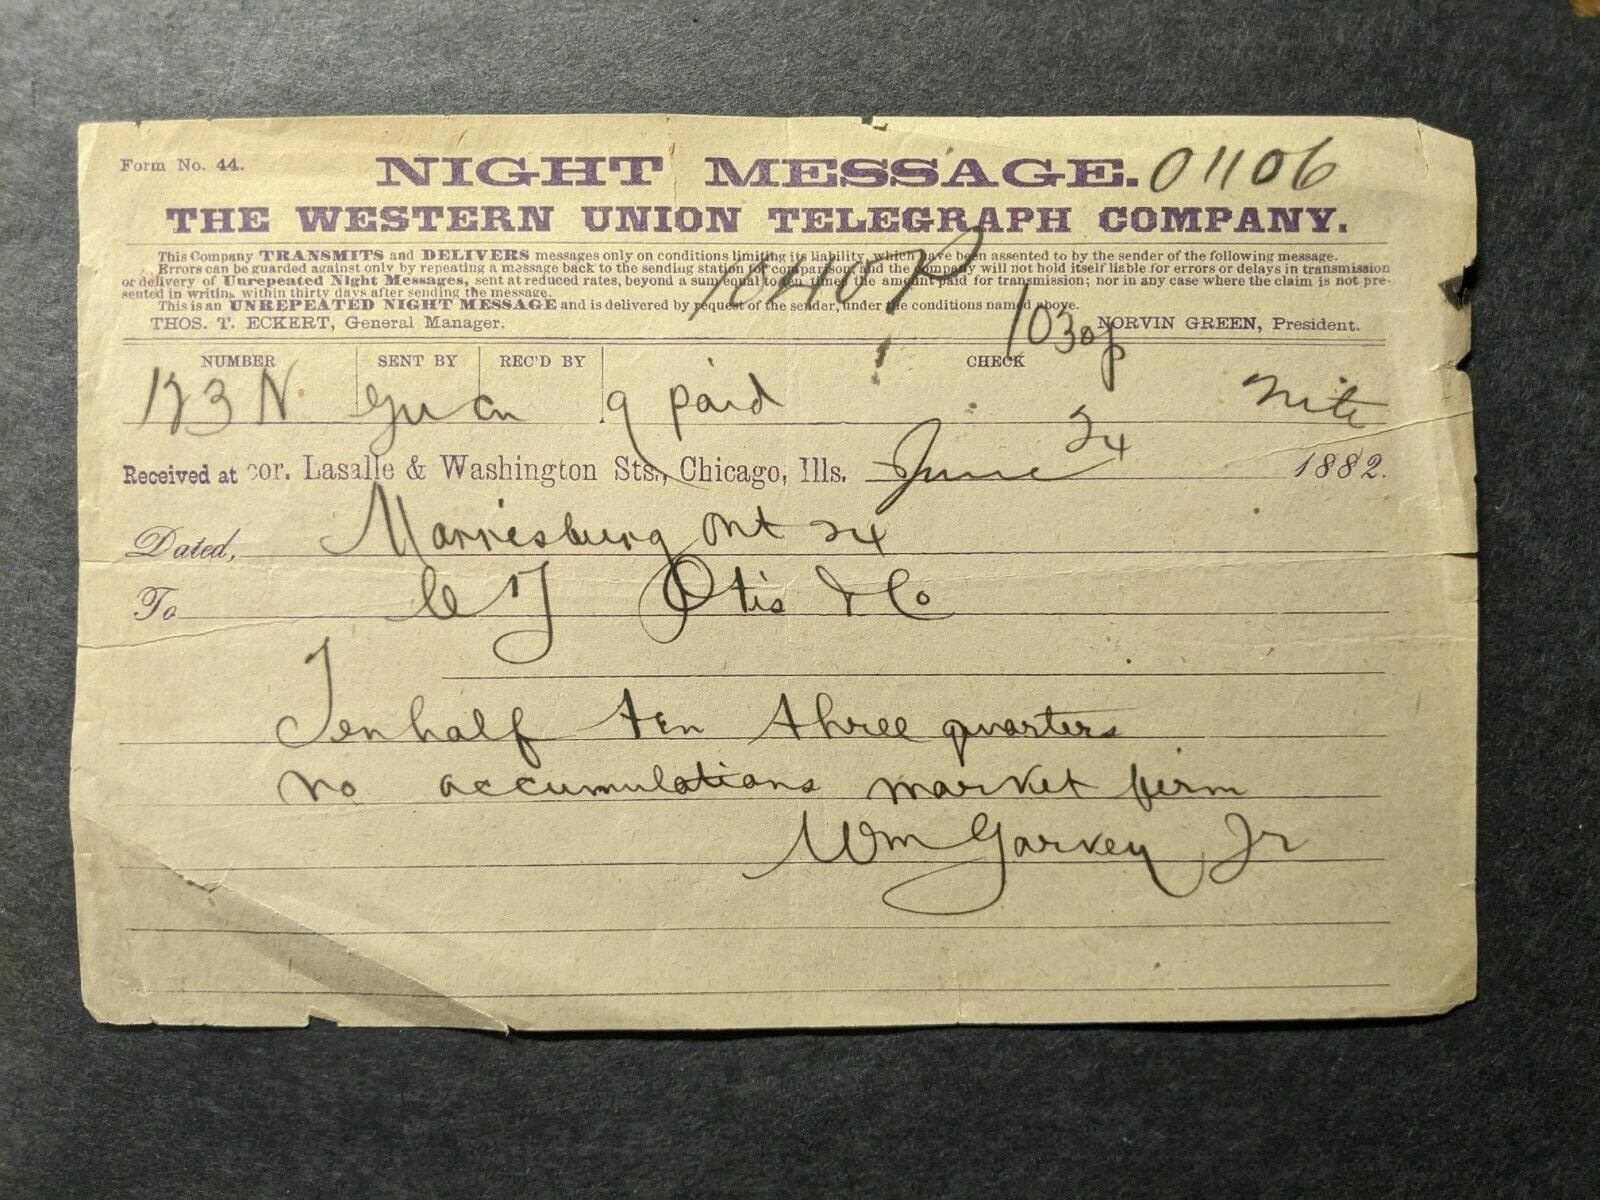 Form No. 44.
NIGHT MESSAGE. 01106
THE WESTERN UNION TELEGRAPH COMPANY.
This Company TRANSMITS and DELIVERS messages only on conditions limiting its liability, which have been assented to by the sender of the following message.
Errors can be guarded against only by repeating a message back to the sending station for comparison, and the company will not hold itself liable for errors or delays in transmission
or delivery of Unrepeated Night Messages, sent at reduced rates, beyond a sum equal to ten times the amount paid for transmission; nor in any case where the claim is not pre-
sented in writing within thirty days after sending the message.
This is an UNREPEATED NIGHT MESSAGE and is delivered by request of the sender, under the conditions named above.
THOS. T. ECKERT, General Manager. NORVIN GREEN, President.
NUMBER SENT BY REC'D BY CHECK
N 9 paid Nite
Received at cor. Lasalle & Washington Sts., Chicago, Ills. June 24 1882.
Dated, Morrisburg Ont 24
To C T Otis & Co
Ten half ten three quarters
no accumulations market firm
Wm Garvey Jr